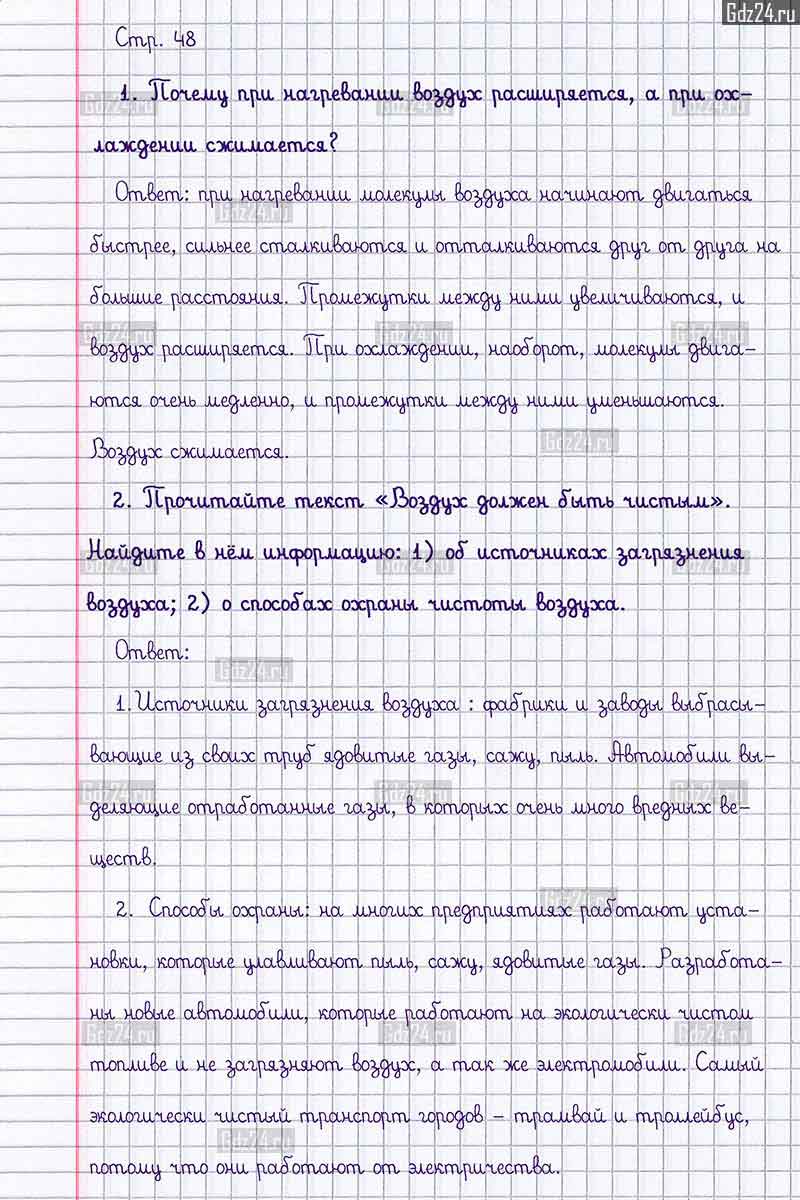 Gdz24.ru
Стр. 48
1. Почему при нагревании воздух расширяется, а при ох-
лаждении сжимается?
Ответ: при нагревании молекулы воздуха начинают двигаться
быстрее, сильнее сталкиваются и отталкиваются друг от друга на
большие расстояния. Промежутки между ними увеличиваются, и
воздух расширяется. При охлаждении, наоборот, молекулы двига-
ются очень медленно, и промежутки между ними уменьшаются.
Воздух сжимается.
2. Прочитайте текст «Воздух должен быть чистым».
Найдите в нём информацию: 1) об источниках загрязнения
воздуха; 2) о способах охраны чистоты воздуха.
Ответ:
1. Источники загрязнения воздуха : фабрики и заводы выбрасы-
вающие из своих труб ядовитые газы, сажу, пыль. Автомобили вы-
деляющие отработанные газы, в которых очень много вредных ве-
ществ.
2. Способы охраны: на многих предприятиях работают уста-
новки, которые улавливают пыль, сажу, ядовитые газы. Разработа-
ны новые автомобили, которые работают на экологически чистом
топливе и не загрязняют воздух, а так же электромобили. Самый
экологически чистый транспорт городов – трамвай и троллейбус,
потому что они работают от электричества.